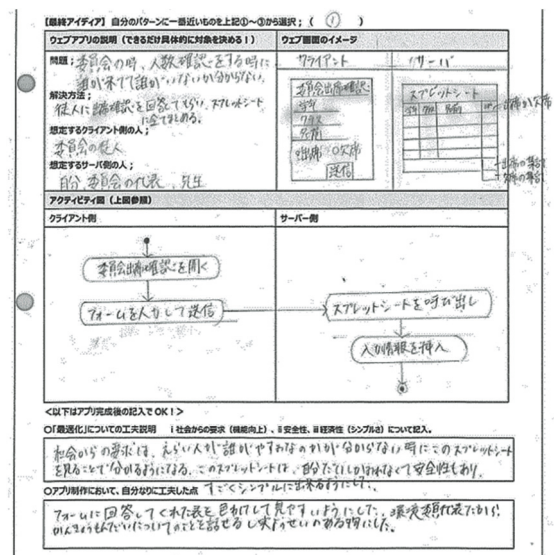 【最終アイディア】自分のパターンに一番近いものを上記①～③から選択；（ ① ）
ウェブアプリの説明（できるだけ具体的に対象を決める！）
ウェブ画面のイメージ
問題；委員会の時、人数確認をする時に
誰が来てて誰がいないか分からない。
解決方法；
役人に出席確認を回答してもらい、スプレットシート
に全てまとめる。
想定するクライアント側の人；
委員会の役人
想定するサーバ側の人；
自分、委員会の代表、先生
クライアント
サーバ
委員会出席確認
学年
クラス
名前
○出席 ○欠席
送信
スプレットシート
学年 クラス 名前
出席か欠席
出席の集合
欠席の集合
アクティビティ図（上図参照）
クライアント側
サーバー側
委員会出席確認を開く
フォームを入力して送信
スプレットシートを呼び出し
入力情報を挿入
＜以下はアプリ完成後の記入でOK！＞
○「最適化」についての工夫説明 ⅰ社会からの要求（機能向上）、ⅱ安全性、ⅲ経済性（シンプルさ）について記入。
社会からの要求は、えらい人が誰がやすみなのかが分からない時にこのスプレットシート
を見ることで分かるようになる。このスプレットシートは、自分たいしかみれなくて安全性もあり、
すごくシンプルに出来るようにした。
○アプリ制作において、自分なりに工夫した点
フォームに回答してくれた表を色わけして見やすいようにした。環境委員代表だから、
かんきょうもんだいについてのことを話せるし実ようせいのある物にした。